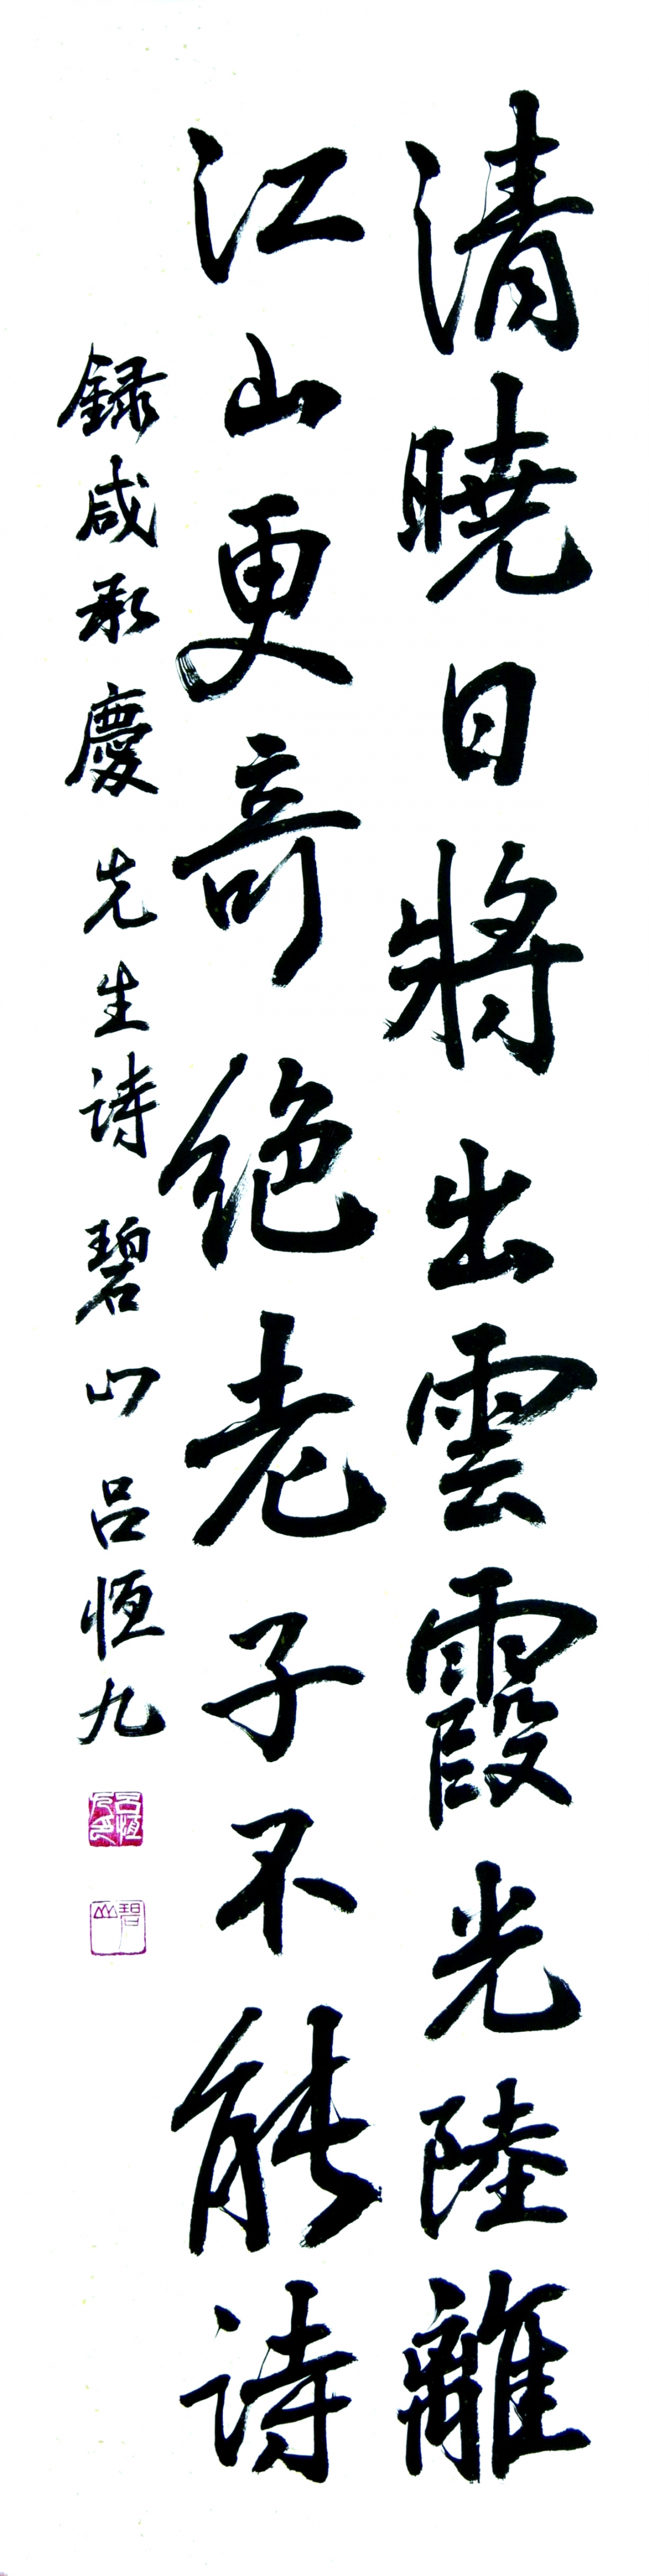 清曉日將出雲霞光陸離
江山更奇絶老子不能詩
録咸承慶先生詩 碧山 呂恒九
呂恒九印
碧山